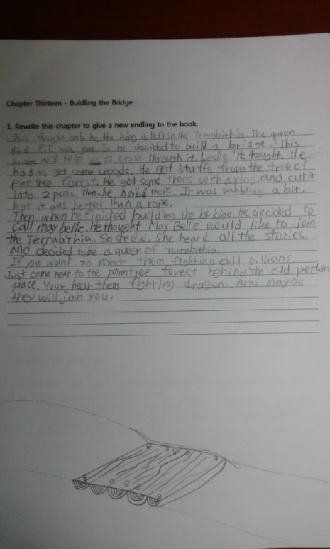 Chapter Thirteen - Building the Bridge
1. Rewrite this chapter to give a new ending to the book.
thought only he, the king is left in the Terrabithia. The queen
died. P.T was gone. So he decided to build a bridge. "This
bridge will help us to cross through it, Leslie." He thought. He
had to get some woods. He got stuffs from the tree of
pine tree forest. He got some trees with axles, and cut it
into 2 parts. Then he nailed it. It was wobbling a bit.
but it was better than a rope.
Then, when he finished building up he decided to
call may belle. he thought May Belle would like to join
the Terrabithia. So she's. She heard all the stories
and decided to be a queen of Terrabithia.
If you want to meet them fighting evil villians
Just come near to the pinetree forest behind the old perkin
place. Your hear them fighting dragon. And maybe
they will join you.